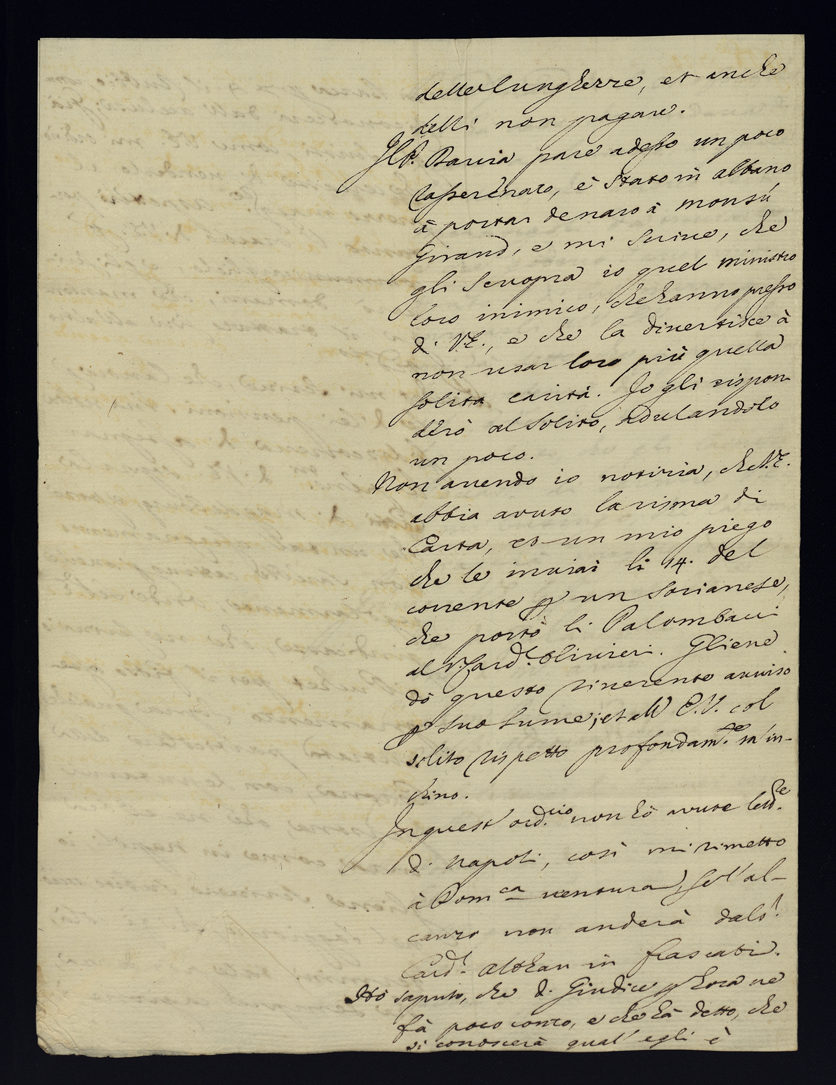 delle lungherre, et anche
delli non pagare.
Il P. Bavia pare adesso un poco
rasserenato, è stato in Albano
à portar denaro à monsù
Giraud, e mi scrive, che
gli scuopra io quel ministro
loro inimico, che hanno presso
di V.E., e che la divertisce à
non usar loro più quella
solita carità. Io gli rispon-
derò al solito, adulandolo
un poco.
Non avendo io notizia, che V.E.
abbia avuto la risma di
Carta, et un mio piego
che le inviai li 14. del
corrente p un Sorianese,
che portò li Palombacci
al S.r Card.l Olivieri. Gliene
dò questo riverente avviso
p suo lume; et all' E.V. col
solito rispetto profondam.te m'in-
chino.
In quest' ord.rio non hò avute lett.e
di Napoli, così mi rimetto
à Dom.ca ventura, se l'al-
canzo non anderà dal S.r
Card.l Althan in Frascati.
Hò saputo, che di Giudice p hora ne
fà poco conto, e che hà detto, che
si conoscerà qual' egli è